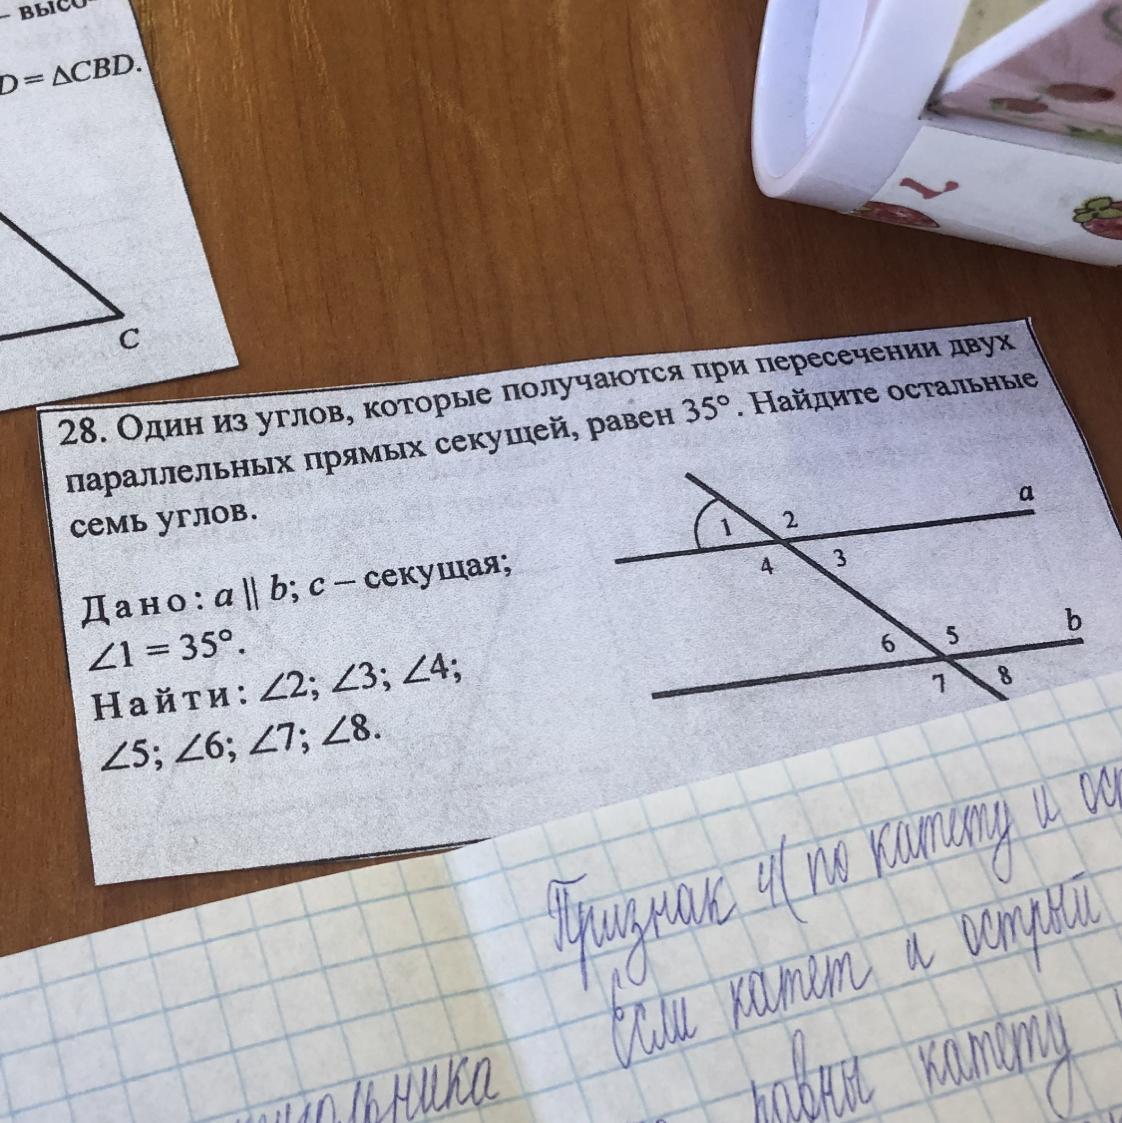 – высо-
D = ΔCBD.
C
28. Один из углов, которые получаются при пересечении двух
параллельных прямых секущей, равен 35°. Найдите остальные
семь углов.
Дано: a || b; c – секущая;
∠1 = 35°.
Найти: ∠2; ∠3; ∠4;
∠5; ∠6; ∠7; ∠8.
a
1 2
4 3
b
6 5
7 8
Признак 4( по катету и ост
Если катет и острый
равны катету